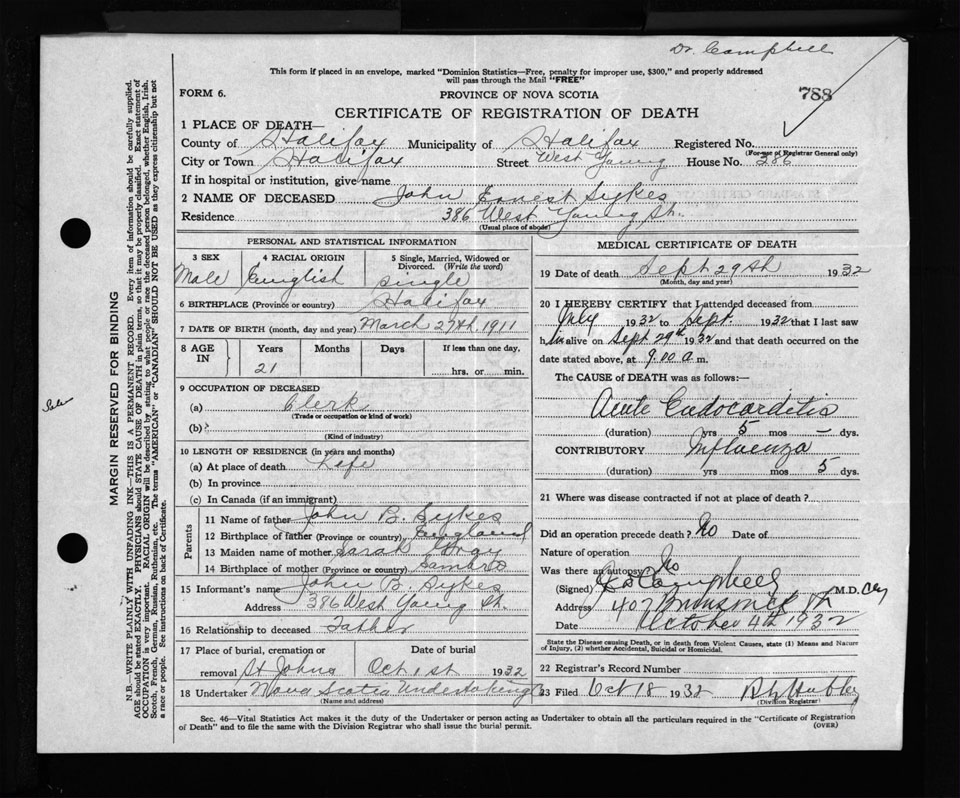 Dr. Campbell
This form if placed in an envelope, marked "Dominion Statistics—Free, penalty for improper use, $300," and properly addressed
will pass through the Mail "FREE"
FORM 6.
PROVINCE OF NOVA SCOTIA
788
CERTIFICATE OF REGISTRATION OF DEATH
1 PLACE OF DEATH—
County of Halifax Municipality of Halifax Registered No.
(For use of Registrar General only)
City or Town Halifax Street West Young House No. 386
If in hospital or institution, give name
2 NAME OF DECEASED John Ernest Sykes
Residence 386 West Young St.
(Usual place of abode)
PERSONAL AND STATISTICAL INFORMATION
3 SEX 4 RACIAL ORIGIN 5 Single, Married, Widowed or
Divorced. (Write the word)
Male English Single
6 BIRTHPLACE (Province or country) Halifax
7 DATE OF BIRTH (month, day and year) March 27th 1911
8 AGE IN Years Months Days If less than one day,
21 hrs. or min.
9 OCCUPATION OF DECEASED
(a) Clerk
(Trade or occupation or kind of work)
(b)
(Kind of industry)
10 LENGTH OF RESIDENCE (in years and months)
(a) At place of death Life
(b) In province
(c) In Canada (if an immigrant)
Parents
11 Name of father John B. Sykes
12 Birthplace of father (Province or country) England
13 Maiden name of mother Sarah Gray
14 Birthplace of mother (Province or country) Sambro
15 Informant's name John B. Sykes
Address 386 West Young St.
16 Relationship to deceased Father
17 Place of burial, cremation or Date of burial
removal St Johns Oct 1st 1932
18 Undertaker Nova Scotia Undertaking Co
(Name and address)
MEDICAL CERTIFICATE OF DEATH
19 Date of death Sept 29th 1932
(Month, day and year)
20 I HEREBY CERTIFY that I attended deceased from
July 1932 to Sept. 1932 that I last saw
him alive on Sept 29th 1932 and that death occurred on the
date stated above, at 9.00 a.m.
The CAUSE of DEATH was as follows:—
Acute Endocarditis
(duration) yrs 5 mos – dys.
CONTRIBUTORY Influenza
(duration) yrs mos 5 dys.
21 Where was disease contracted if not at place of death?
Did an operation precede death? No Date of
Nature of operation
Was there an autopsy? No
(Signed) Campbell M.D.
Address 407 Brunswick St
Date October 4th 1932
State the Disease causing Death, or in death from Violent Causes, state (1) Means and Nature
of Injury, (2) whether Accidental, Suicidal or Homicidal.
22 Registrar's Record Number
23 Filed Oct 18 1932
(Division Registrar)
Sec. 46—Vital Statistics Act makes it the duty of the Undertaker or person acting as Undertaker to obtain all the particulars required in the "Certificate of Registration
of Death" and to file the same with the Division Registrar who shall issue the burial permit.
(OVER)
MARGIN RESERVED FOR BINDING
N.B.—WRITE PLAINLY WITH UNFADING INK—THIS IS A PERMANENT RECORD. Every item of information should be carefully supplied.
AGE should be stated EXACTLY. PHYSICIANS should STATE CAUSE OF DEATH in plain terms, so that it may be properly classified. Exact statement of
OCCUPATION is very important. RACIAL ORIGIN will be described by stating to what people or race the deceased person belonged, whether English, Irish,
Scotch, French, German, Russian, Ruthenian, etc. The terms "AMERICAN" or "CANADIAN" SHOULD NOT BE USED as they express citizenship but not
a race or people. See instructions on back of Certificate.